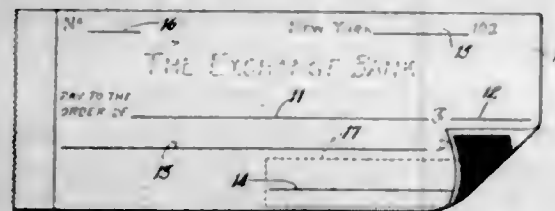 No 16 New York 15 192
THE EXCHANGE BANK
PAY TO THE
ORDER OF 11 $ 12
13
17
14